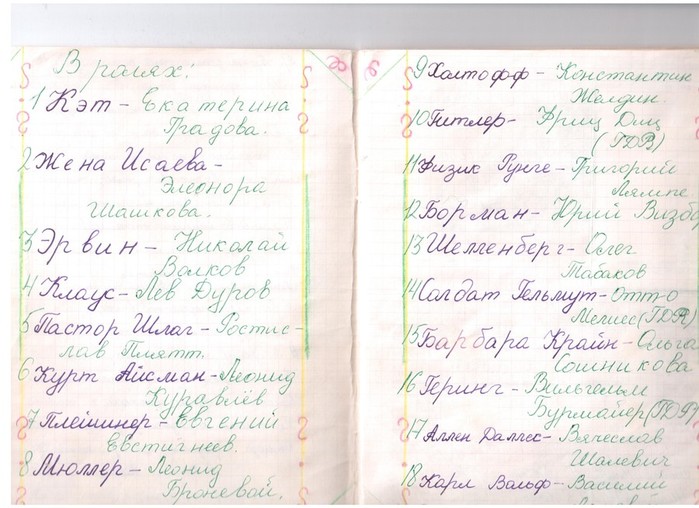 В ролях:
1 Кэт - Екатерина
Градова.
2 Жена Исаева-
Элеонора
Шашкова.
3 Эрвин - Николай
Волков
4 Клаус - Лев Дуров
5 Пастор Шлаг - Ростис-
лав Плятт.
6 Курт Айсман - Леонид
Куравлёв
7 Плейшнер - Евгений
Евстигнеев.
8 Мюллер - Леонид
Броневой.
9 Холтофф - Константин
Желдин.
10 Гитлер - Фриц Диц
(ГДР)
11 Физик Рунге - Григорий
Лямпе
12 Борман - Юрий Визбо
13 Шелленберг - Олег
Табаков
14 Солдат Гельмут - Отто
Мелиес (ГДР)
15 Барбара Крайн - Ольга
Сошникова
16 Геринг - Вильгельм
Бурмайер (ГДР)
17 Аллен Даллес - Вячеслав
Шалевич
18 Карл Вольф - Василий